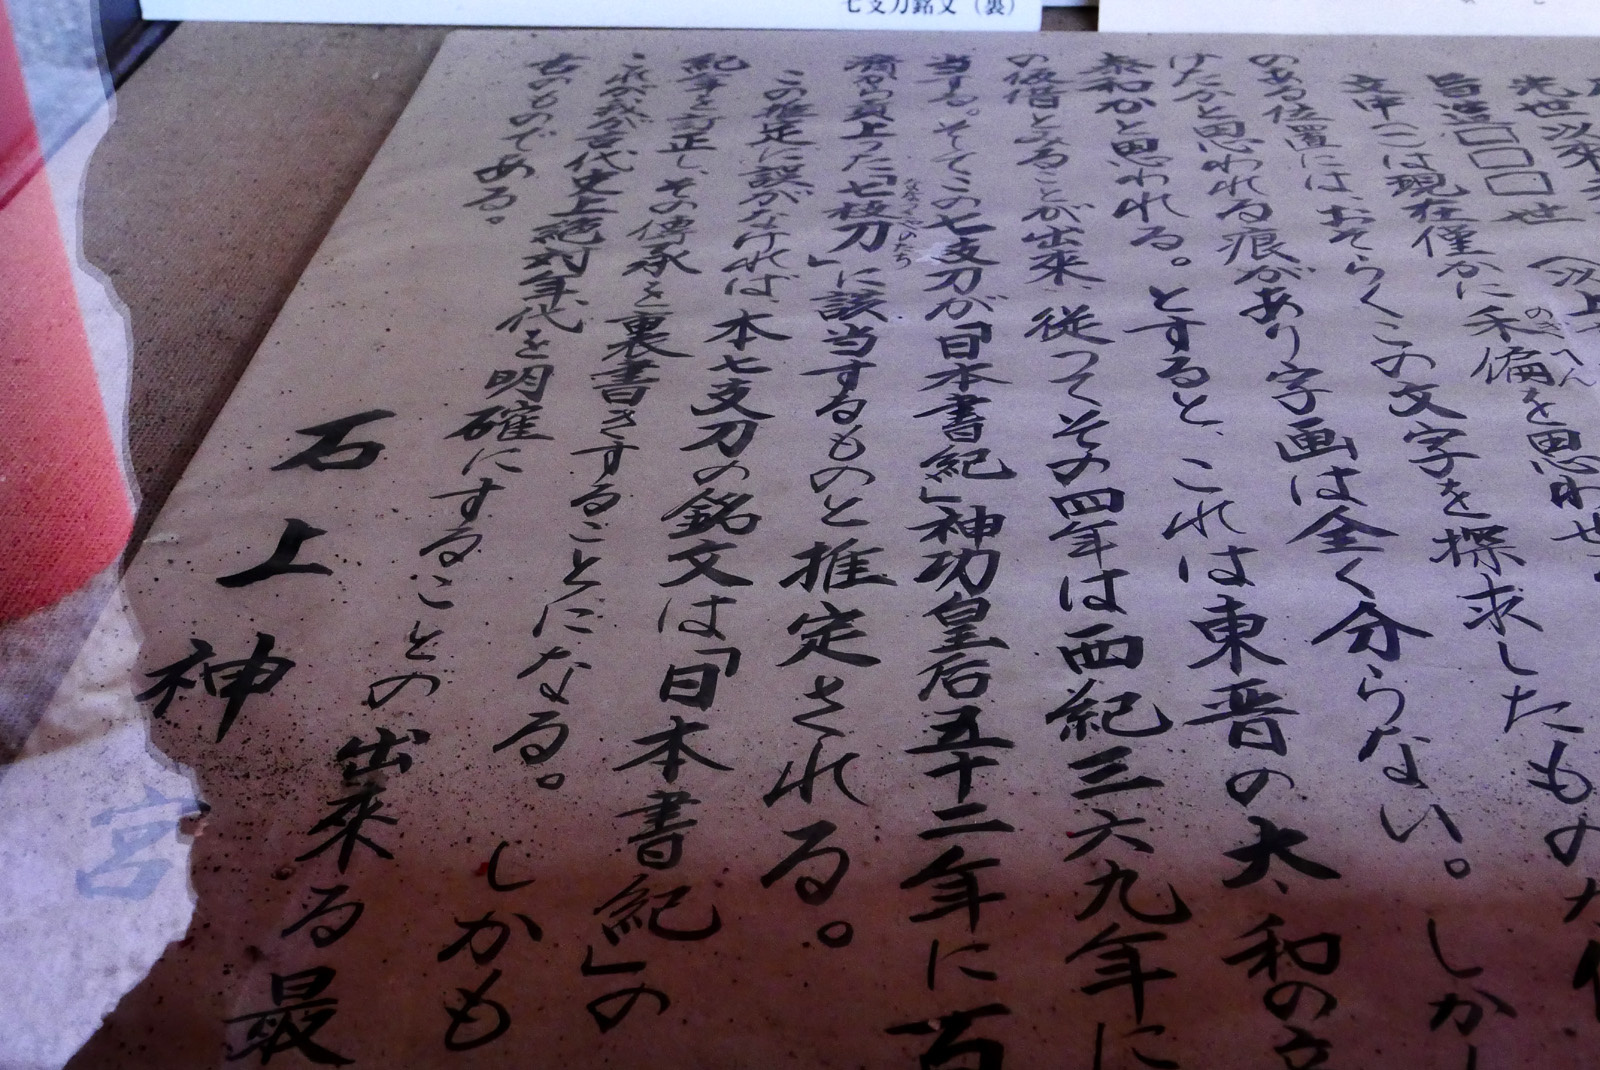 七支刀銘文（裏）
先世以来未
旨造□□□世
のぎへん
禾偏を思わせ
文中(一)は現在僅かに
のある位置には、おそらくこの文字を探求したもの
けたかと思われる痕があり字画は全く分らない。しか
泰和かと思われる。とすると、これは東晋の太和の
の仮借とみることが出来、従つてその四年は西紀三六九年に
当する。そしてこの七支刀が「日本書紀」神功皇后五十二年に百
済から貢上つた「七枝刀」に該当するものと推定される。
ななつさやのたち
この推定に誤がなければ、本七支刀の銘文は「日本書紀」の
紀年を訂正し、その傳承を裏書きすることになる。しかも
これが我が古代史上絶対年代を明確にすることの出来る最
古のものである。
石上神宮